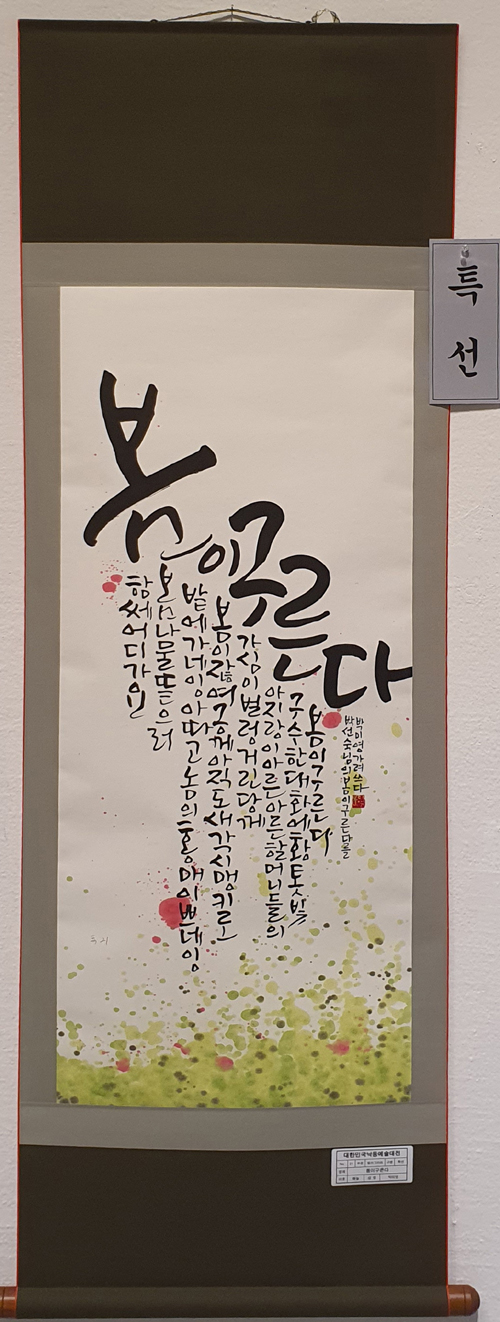 특선
봄이구른다
함쎄어디가요
봄나물뜯으러
밭에가네잉아따고놈의홍매이쁘네잉
봄이잖여긍께아직도새각시맹키로
가심이벌렁거린당께
아지랑이아른아른할머니들의
구수한대화에황톳빛
봄이구른다
박선숙님의봄이구른다를
박미영가려쓰다
대한민국낙동예술대전
봄이구른다